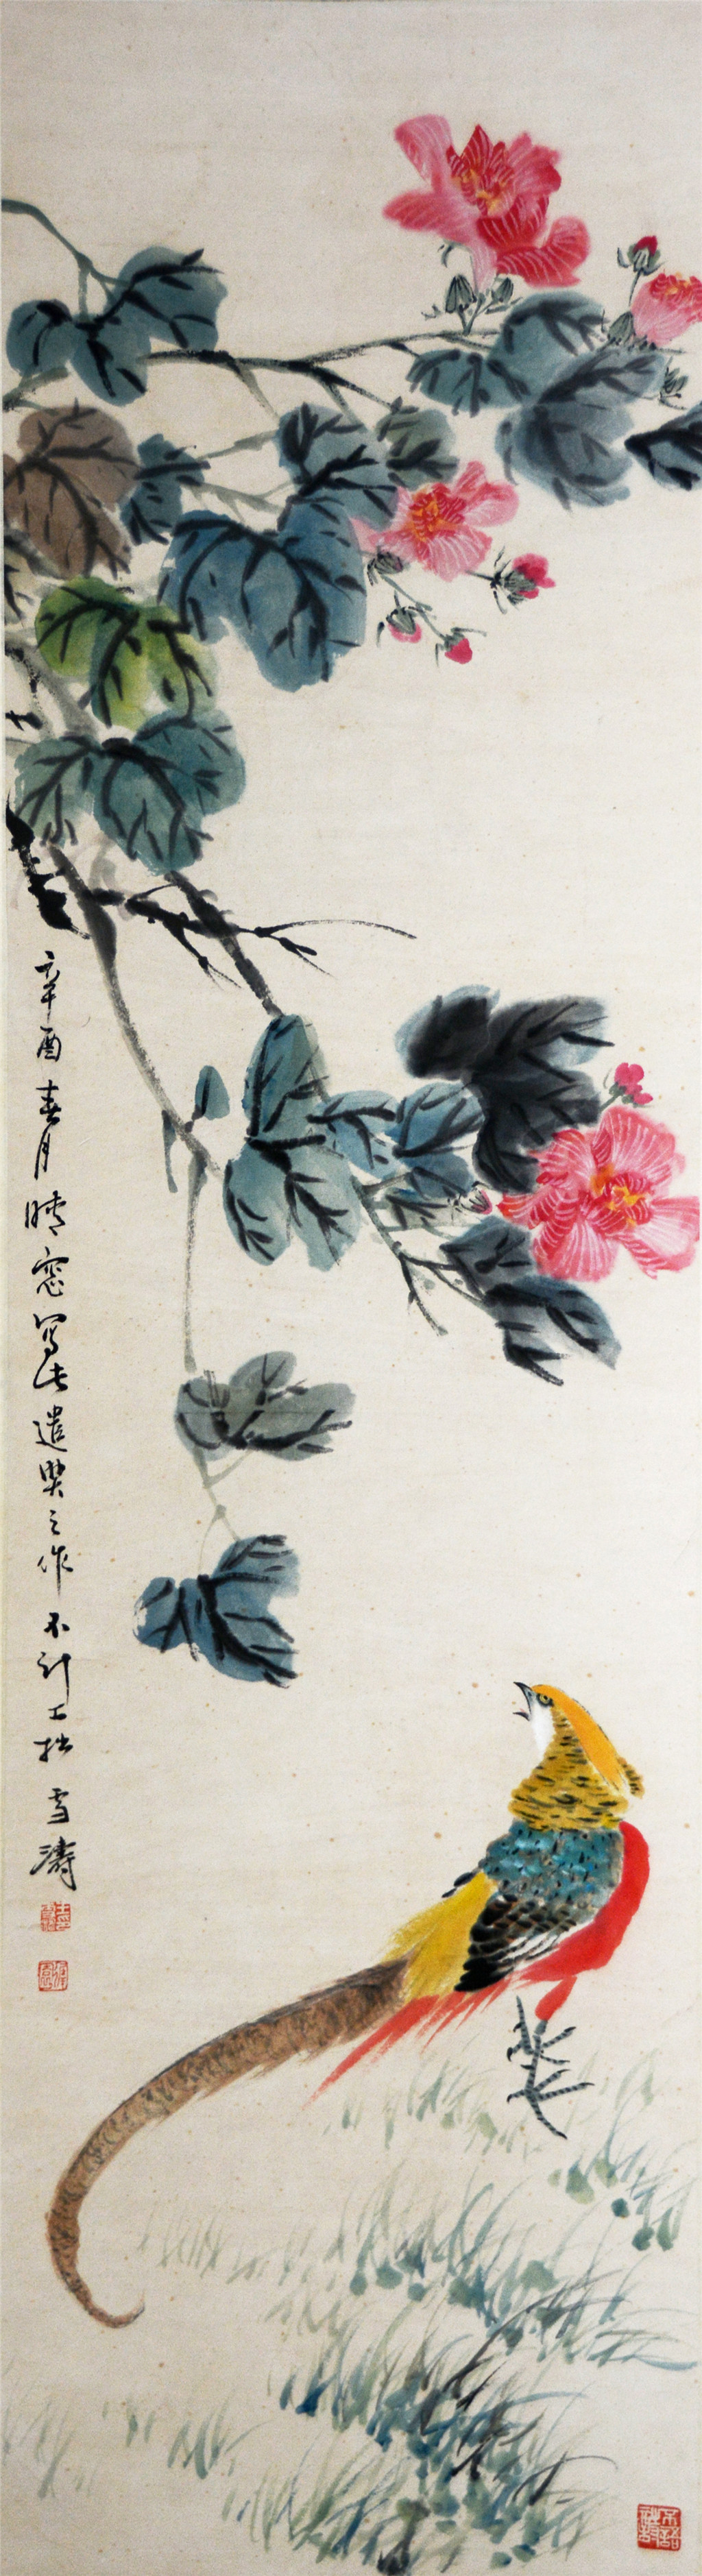 辛酉春月晴窓写此遣興之作不计工拙雪濤